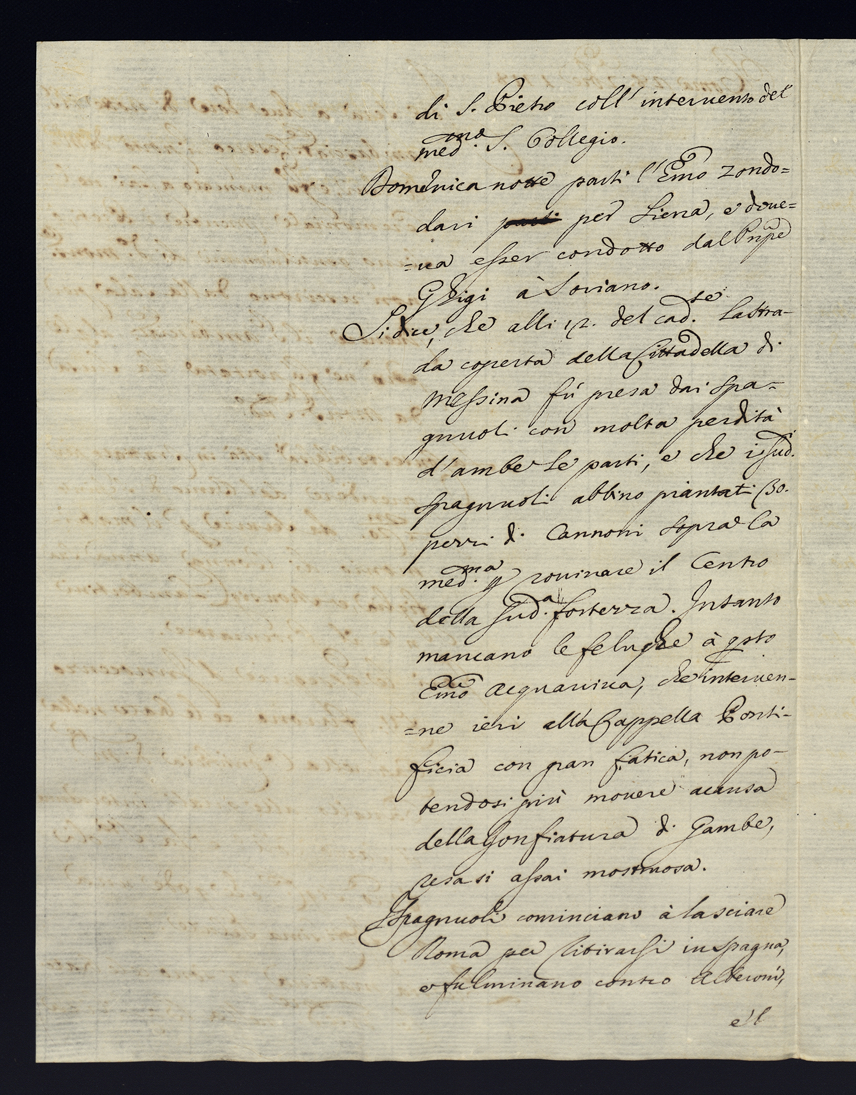 di S. Pietro coll' intervento del
med.mo S. Collegio.
Domenica notte partì l'Emo Zondo=
dari per Siena, e dove=
=va esser condotto dal Pnpe
Ghigi à Soriano.
Si dice, che alli 12. del cad.te la stra-
da coperta della Cittadella di
Messina fù presa dai Spa=
gnuoli con molta perdita
d'ambe le parti, e che i sud.
Spagnuoli abbino piantati 30.
pezzi di Cannoni sopra la
med.ma p rovinare il Centro
della sud.a fortezza. Intanto
mancano le felughe à qsto
Emo Acquaviva, che interven-
=ne ieri alla Cappella Ponti-
ficia con gran fatica, non po-
tendosi più movere acausa
della gonfiatura di Gambe,
resasi assai mostruosa.
Spagnuoli cominciano à lasciare
Roma per ritirarsi in Spagna,
e fulminano contro Alberoni,
e'l